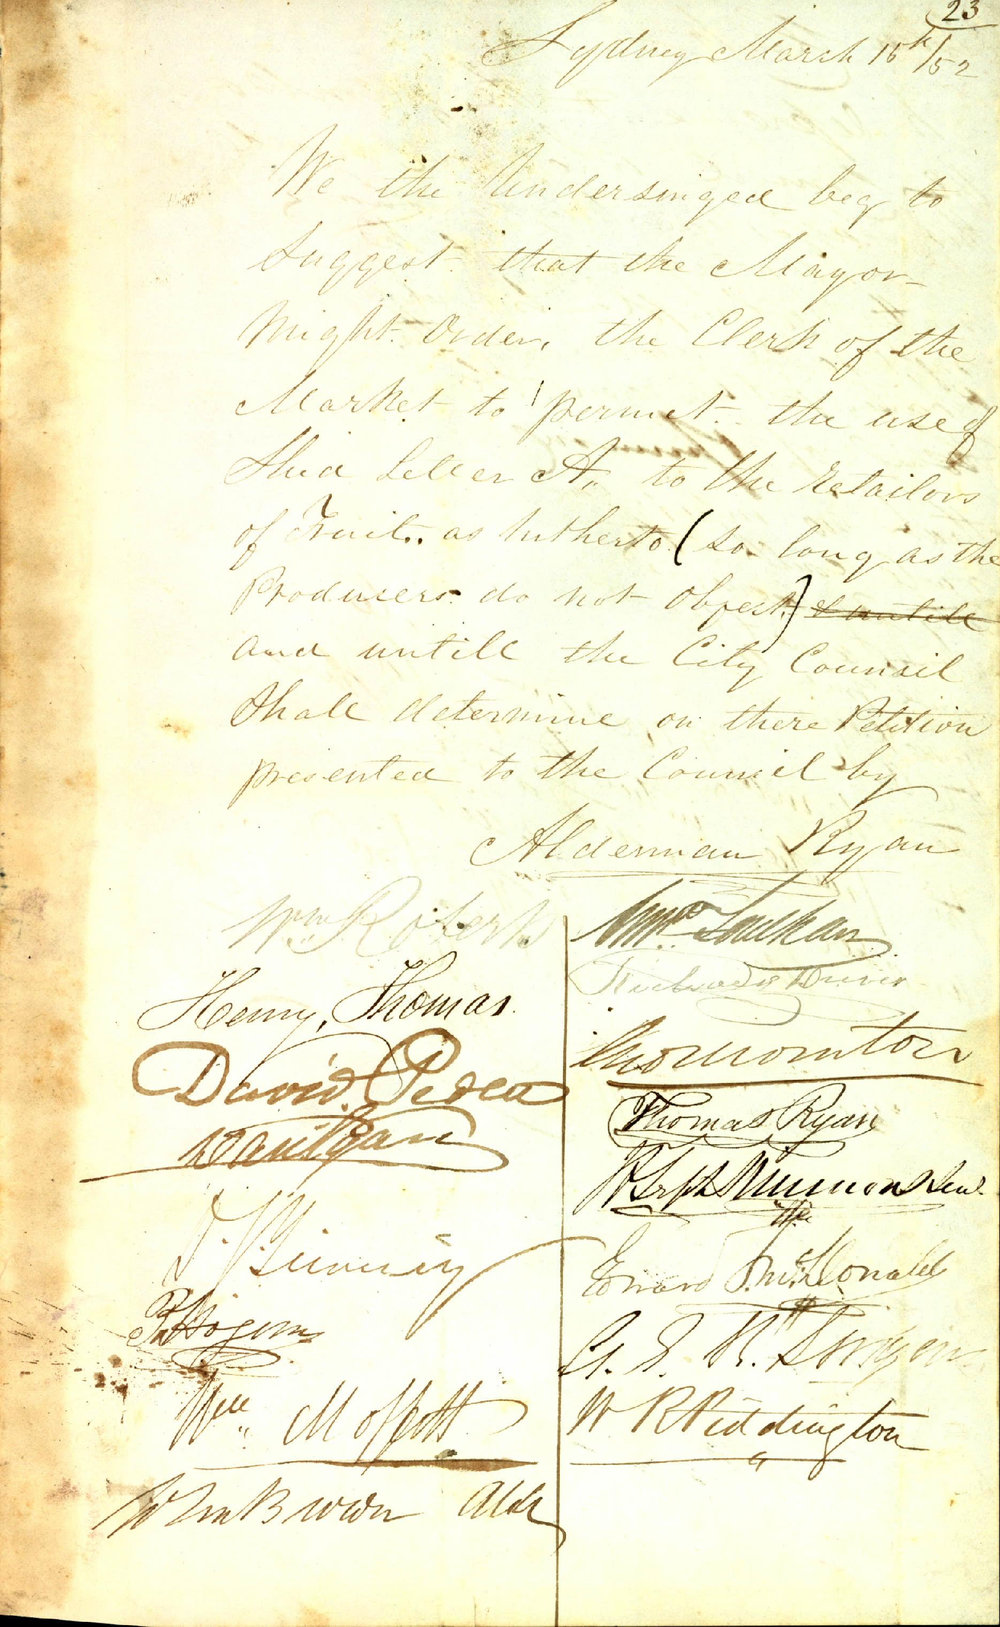 23
Sydney March 15th/52
We the Undersinged beg to
suggest that the Mayor
Might Order, the Clerk of the
Market to permit the use of
Shed Letter A,, to the retailors
of Fruit.. as hitherto (so long as the
Producers do not Object) & untill
and untill the City Council
Shall determine on there Petition
presented to the Council by
Alderman Ryan
Wm Roberts
Henry Thomas
David Peden
Dan Egan
Wm Moffitt
Wm Brown Aldr
Thomas Ryan
Edward McDonald
W R Piddington